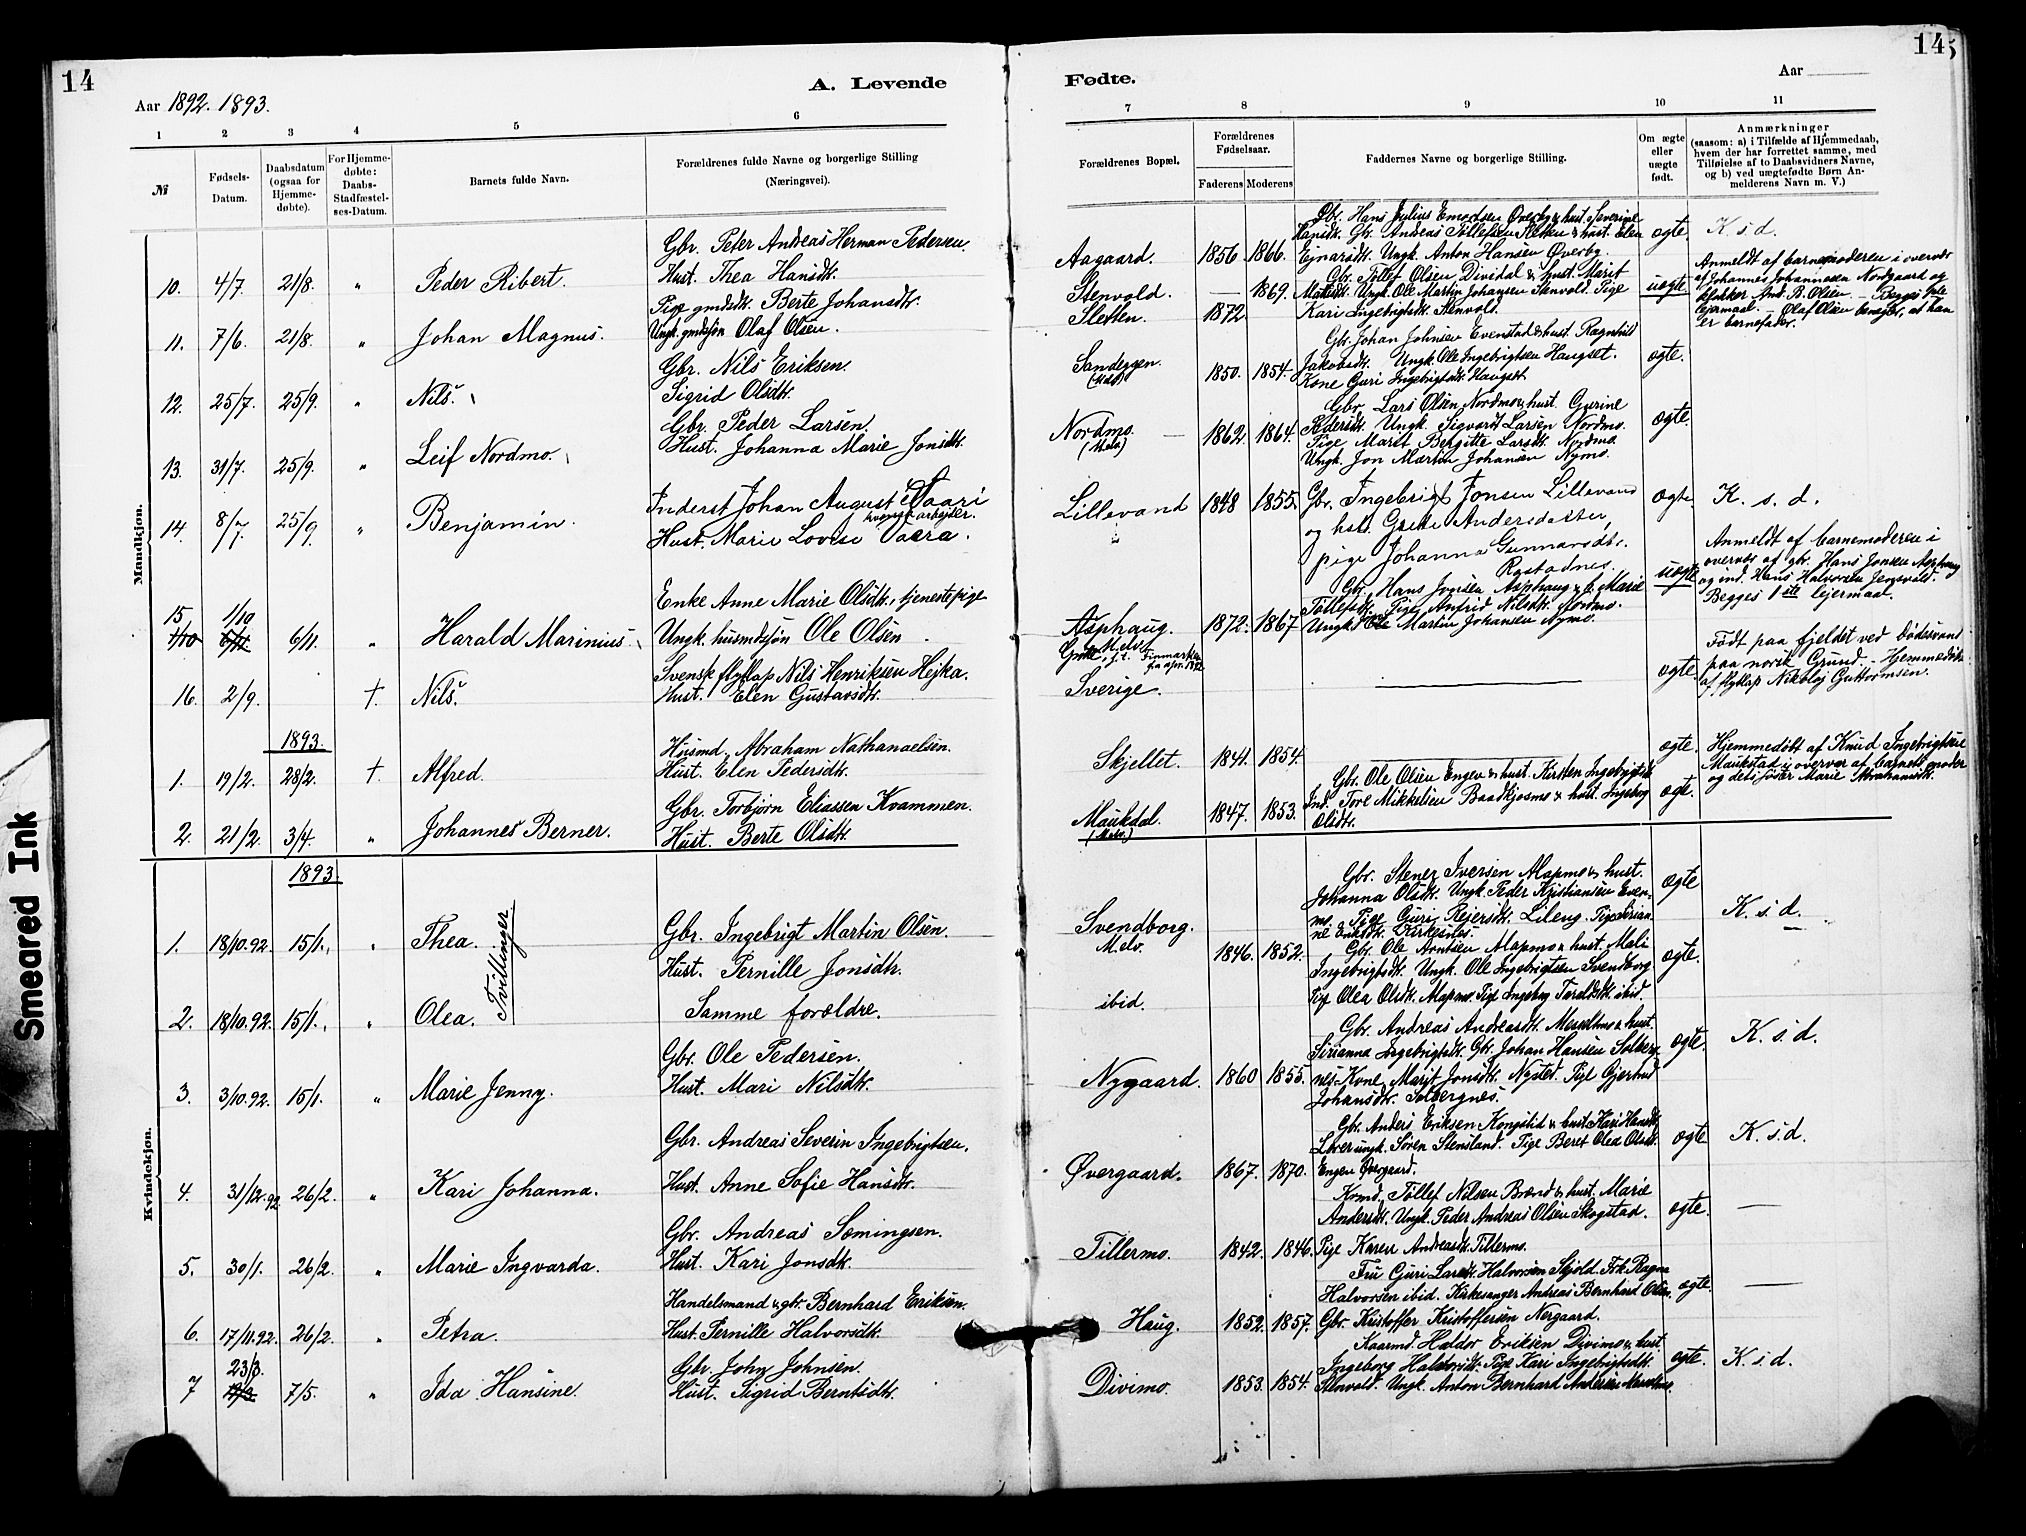 14
14
A. Levende
Fødte.
Aar 1892. 1893.
Aar
1 2 3 4 5 6 7 8 9 10 11
№
Fødsels-
Datum.
Daabsdatum
(ogsaa for
Hjemme-
døbte).
For Hjemme-
døbte:
Daabs-
Stadfæstel-
ses-Datum.
Barnets fulde Navn.
Forældrenes fulde Navne og borgerlige Stilling
(Næringsvei).
Forældrenes Bopæl.
Forældrenes
Fødselsaar.
Faderens
Moderens
Faddernes Navne og borgerlige Stilling.
Om ægte
eller
uægte
født.
Anmærkninger
(saasom: a) i Tilfælde af Hjemmedaab,
hvem der har forrettet samme, med
Tilføielse af to Daabsvidners Navne,
og b) ved uægtefødte Børn An-
melderens Navn m. V.)
Mandkjøn.
10. 4/7. 21/8. " Peder Ribert.
Gbr. Peter Andreas Herman Pedersen
Hust. Thea Hansdtr.
Aagaard. 1856 1866.
Gbr. Hans Julius Enertsen Øverby & hust. Severine
Hansdtr. Gbr. Andreas Tollefsen & hust. Elen
Ejnarsdtr. Ungk. Anton Hansen Øverby.
ægte. K. s. d.
11. 7/6. 21/8. " Johan Magnus.
Pige gmdsdtr. Berte Johansdtr.
Ungk. gmdssøn Olaf Olsen.
Stenvold. — 1869.
Sletten. 1872
Gbr. Tollef Olsen Dividal & hust. Marit
Ungk. Ole Martin Johansen Stenvold. Pige
Kari Ingebrigtsdtr. Stenvold.
uægte
Anmeldt af barnemoderen i overvær
af Johannes Johannesen Nordgaard og
And. B. Olsen — Begges 1ste
lejermaal. Olaf Olsen benægter, at han
er barnefader.
12. 25/7. 25/9. " Nils.
Gbr. Nils Eriksen.
Sigrid Olsdtr.
Sandeggen. 1850. 1854.
Gbr. Johan Johnsen Evenstad & hust. Ragnhild
Jakobsdtr. Ungk. Ole Ingebrigtsen Haugset.
Kone Guri Ingebrigtsdtr. Haugset.
ægte.
13. 31/7. 25/9. " Leif Nordmo.
Gbr. Peder Larsen.
Hust. Johanna Marie Jonsdtr.
Nordmo. (Melv.) 1862. 1864.
Gbr. Lars Olsen Nordmo & hust. Gurine
Pedersdtr. Ungk. Sigvardt Larsen Nordmo.
Pige Marit Bergitte Larsdtr. Nordmo.
Ungk. Jon Martin Johansen Nymo.
ægte.
14. 8/7. 25/9. " Benjamin.
Inderst Johan August Vaari
svensk arbejder.
Hust. Marie Lovise Vaara.
Lillevand 1848 1855.
Gbr. Ingebrigt Jonsen Lillevand
og hst. Grete Andersdatter,
pige Johanna Gunnarsdtr.
Rostadnes.
ægte K. s. d.
15 1/10 6/11. " Harald Marinius
Enke Anne Marie Olsdtr., tjenestepige
Ungk. husmdssøn Ole Olsen
Asphaug. 1872. 1867
Gbr. Hans Jonsen Asphaug & h. Marie
Tollefsdtr. Pige Anfrid Nilsdtr. Nordmo.
Ungk. Ole Martin Johansen Nymo.
uægte
Anmeldt af barnemoderen i
overvær af gbr. Hans Jonsen Asphaug
og ind. Hans Halvorsen Jensvold.
Begges 1ste lejermaal.
16. 2/9. †. Nils.
Svensk flytlap Nils Henriksen Hejka.
Hust. Elen Gustavsdtr.
Sverige.
ægte
Født paa fjeldet ved Dødesvand
paa norsk Grund. Hjemmedøbt
af flytlap Nikolaj Guttormsen.
1893.
1. 19/2. 28/2. †. Alfred.
Husmd. Abraham Nathanaelsen.
Hust. Elen Pedersdtr.
Skjellet. 1841. 1854.
ægte.
Hjemmedøbt af Knud Ingebrigtsen
Maukstad i overvær af barnets moder
og dets søster Marie Abrahamsdtr.
2. 21/2. 3/4. " Johannes Berner.
Gbr. Torbjørn Eliassen Kvammen.
Hust. Berte Olsdtr.
Maukdal. (Melv.) 1847. 1853.
Gbr. Ole Olsen Engen & hust. Kirsten Ingebrigtsdtr.
Ind. Tore Mikkelsen Baadkjosmo & hust. Ingeborg
Olsdtr.
ægte.
Kvindekjøn.
1893.
1. 18/10.92. 15/1. " Thea.
Tvillinger
Gbr. Ingebrigt Martin Olsen.
Hust. Pernille Jonsdtr.
Svendborg. Melv. 1846. 1852.
Gbr. Stener Iversen Alapmo & hust.
Johanna Olsdtr. Ungk. Peder Kristiansen Even-
mo. Pige Guri Rejersdtr. Lileng. Pige Sirian-
ne Eriksdtr. Kirkesnes.
ægte K. s. d.
2. 18/10.92. 15/1. " Olea.
Samme forældre.
ibid.
Gbr. Ole Arntsen Alapmo & hust. Mali
Ingebrigtsdtr. Ungk. Ole Ingebrigtsen Svendborg
Pige Olea Olsdtr. Alapmo. Pige Ingeborg Taraldsdtr. ibid.
ægte.
3. 3/10.92. 15/1. " Marie Jenny.
Gbr. Ole Pedersen.
Hust. Mari Nilsdtr.
Nygaard. 1860 1855.
Gbr. Andreas Andreasdtr. Messeltmo & hust.
Sirianna Ingebrigtsdtr. Gbr. Johan Hansen Solberg-
nes. Kone Marit Jonsdtr. Nysted. Pige Gjertrud
Johansdtr. Solbergnes.
ægte. K. s. d.
4. 31/12.92 26/2. " Kari Johanna.
Gbr. Andreas Severin Ingebrigtsen.
Hust. Anne Sofie Hansdtr.
Øvergaard. 1867. 1870.
Gbr. Anders Eriksen Kongslid & hust. Kari Hansdtr.
Lærer ungk. Søren Stensland. Pige Beret Olea Olsdtr.
Engen Øvergaard.
ægte K. s. d.
5. 30/1. 26/2. " Marie Ingvarda.
Gbr. Andreas Sæmingsen.
Hust. Kari Jonsdtr.
Tillermo. 1842. 1846.
Krmd. Tollef Nilsen Brænd & hust. Marie
Andersdtr. Ungk. Peder Andreas Olsen Skogstad.
Pige Karen Andreasdtr. Tillermo.
ægte. —
6. 17/11.92. 26/2. " Petra.
Handelsmand & gbr. Bernhard Eriksen.
Hust. Pernille Halvorsdtr.
Haug. 1852. 1857.
Fru Guri Larsdtr. Halvorsen Skjold. Frk. Ragna
Halvorsen ibid. Kirkesanger Andreas Bernhard Olsen.
Gbr. Kristoffer Kristoffersen Nergaard.
ægte. —
7 23/3. 7/5. " Ida Hansine.
Gbr. John Johnsen.
Hust. Sigrid Berntsdtr.
Divimo. 1853. 1854.
Kaarmd. Haldor Eriksen Divimo & hust.
Ingeborg Halvorsdtr. Pige Kari Ingebrigtsdtr.
Stenvold. Ungk. Anton Bernhard Andersen
ægte. K. s. d.
Smeared Ink